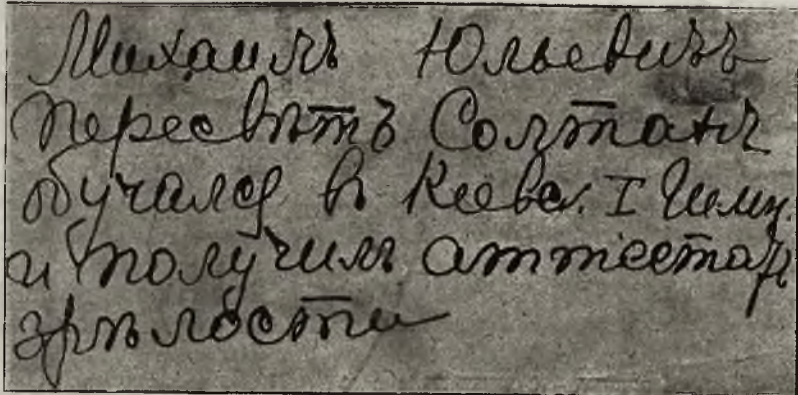 Михаилъ Юльевичъ
Пересвѣтъ Солтанъ
обучался в Киевс. I Гимн.
и получилъ аттестатъ
зрѣлости